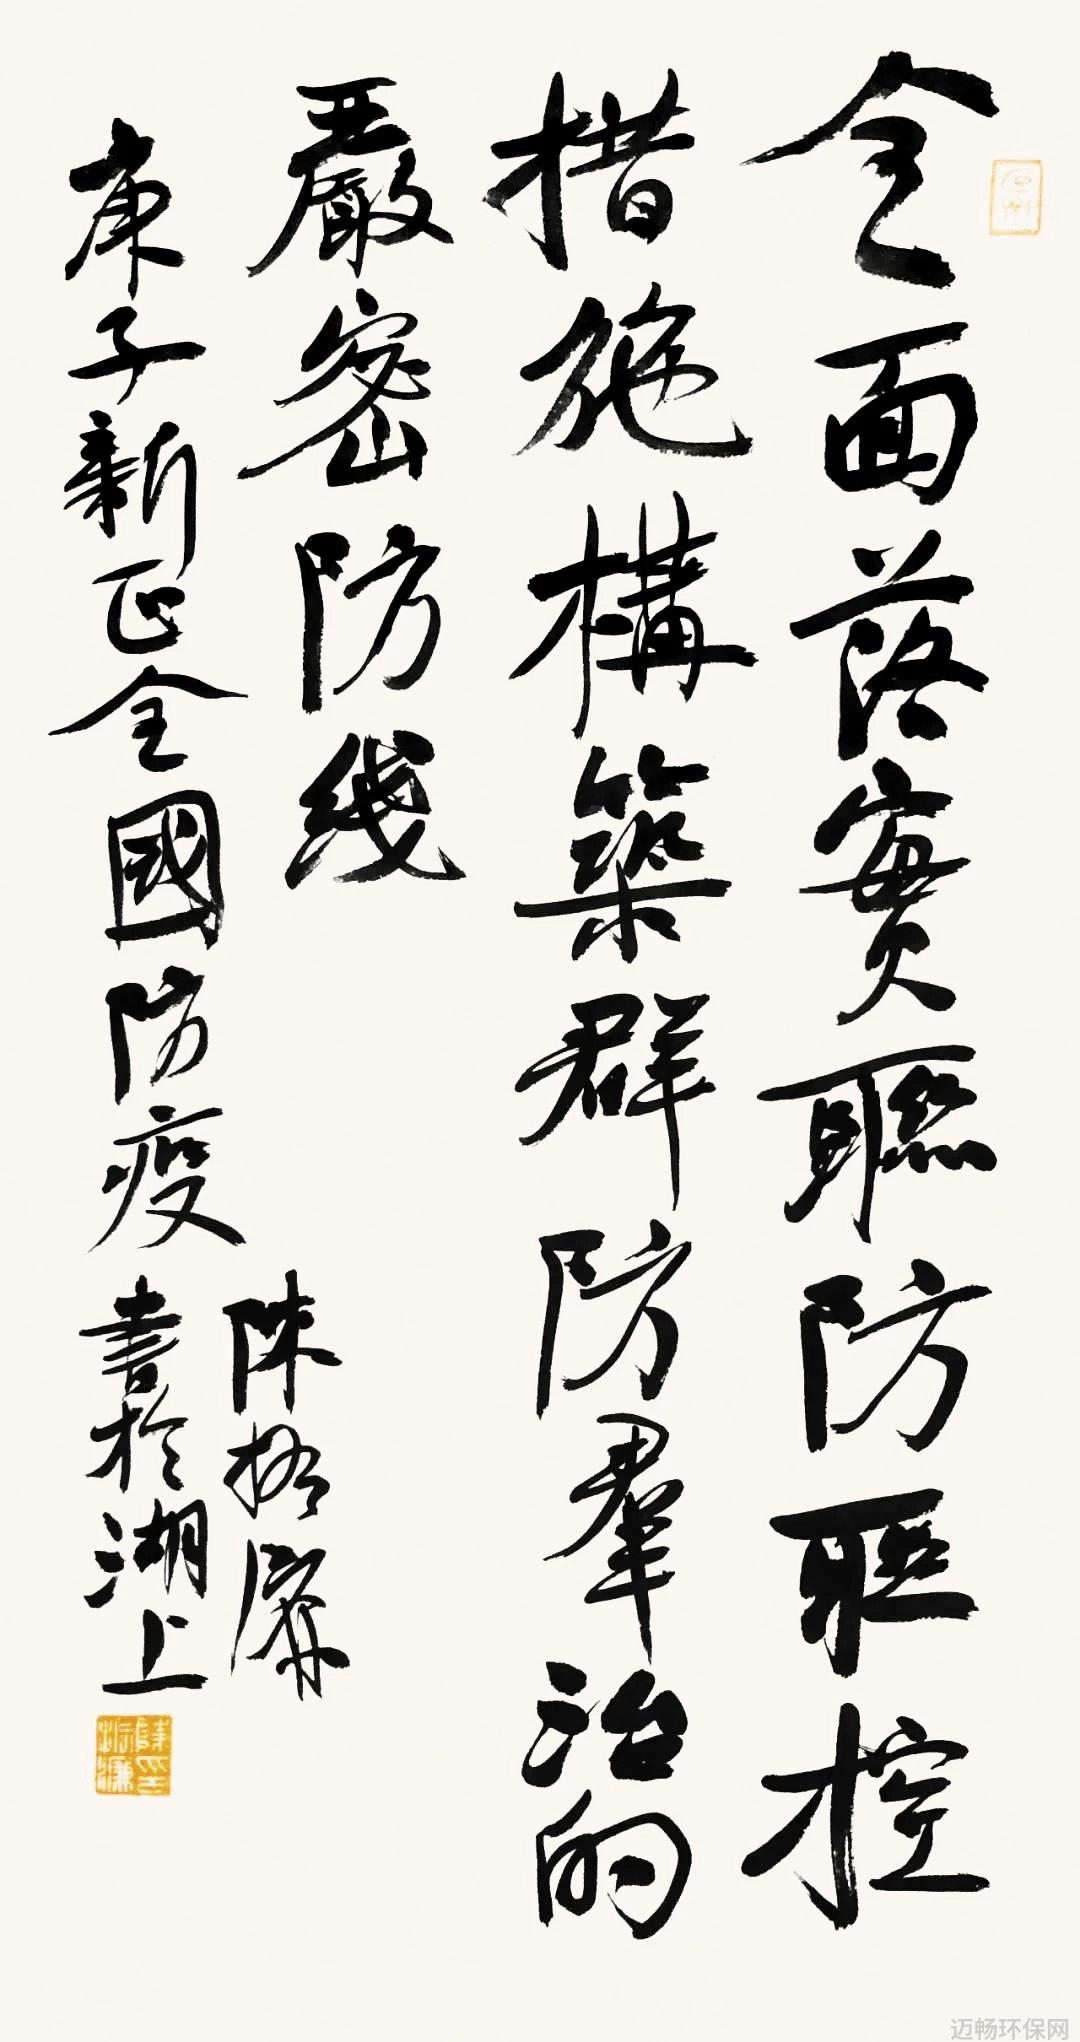 全面落實聯防聯控
措施構築群防羣治的
嚴密防綫
庚子新正全國防疫
陳振濂
書於湖上
迈畅环保网